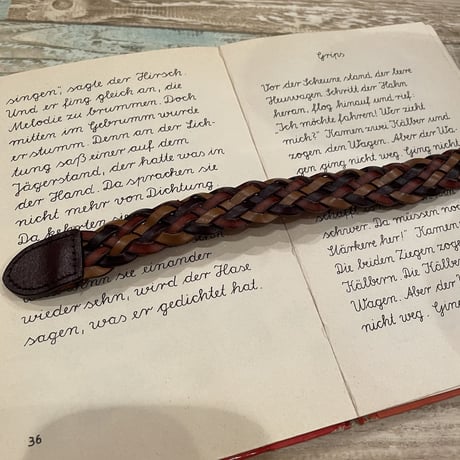 singen", sagte der Hirsch.
Und er fing gleich an, die
Melodie zu brummen. Doch
mitten im Gebrumm wurde
er stumm. Denn an der Lich-
tung saß einer auf dem
Jägerstand, der hatte was in
der Hand. Da sprachen sie
nicht mehr von Dichtung
Da kehrten sie
wenn sie einander
wieder sehn, wird der Hase
sagen, was er gedichtet hat.
36
Grips
Vor der Scheune stand der leere
Heuwagen. Schritt der Hahn
heran, flog hinauf und rief:
"Ich möchte fahren! Wer zieht
mich?" Kamen zwei Kälber und
zogen den Wagen. Aber der Wa-
gen ging nicht weg. Ging nicht
schwer. Da müssen noch
Stärkere her!" Kamen
Die beiden Ziegen zogen
Kälbern. Die Kälber
Wagen. Aber der W
nicht weg. Ging